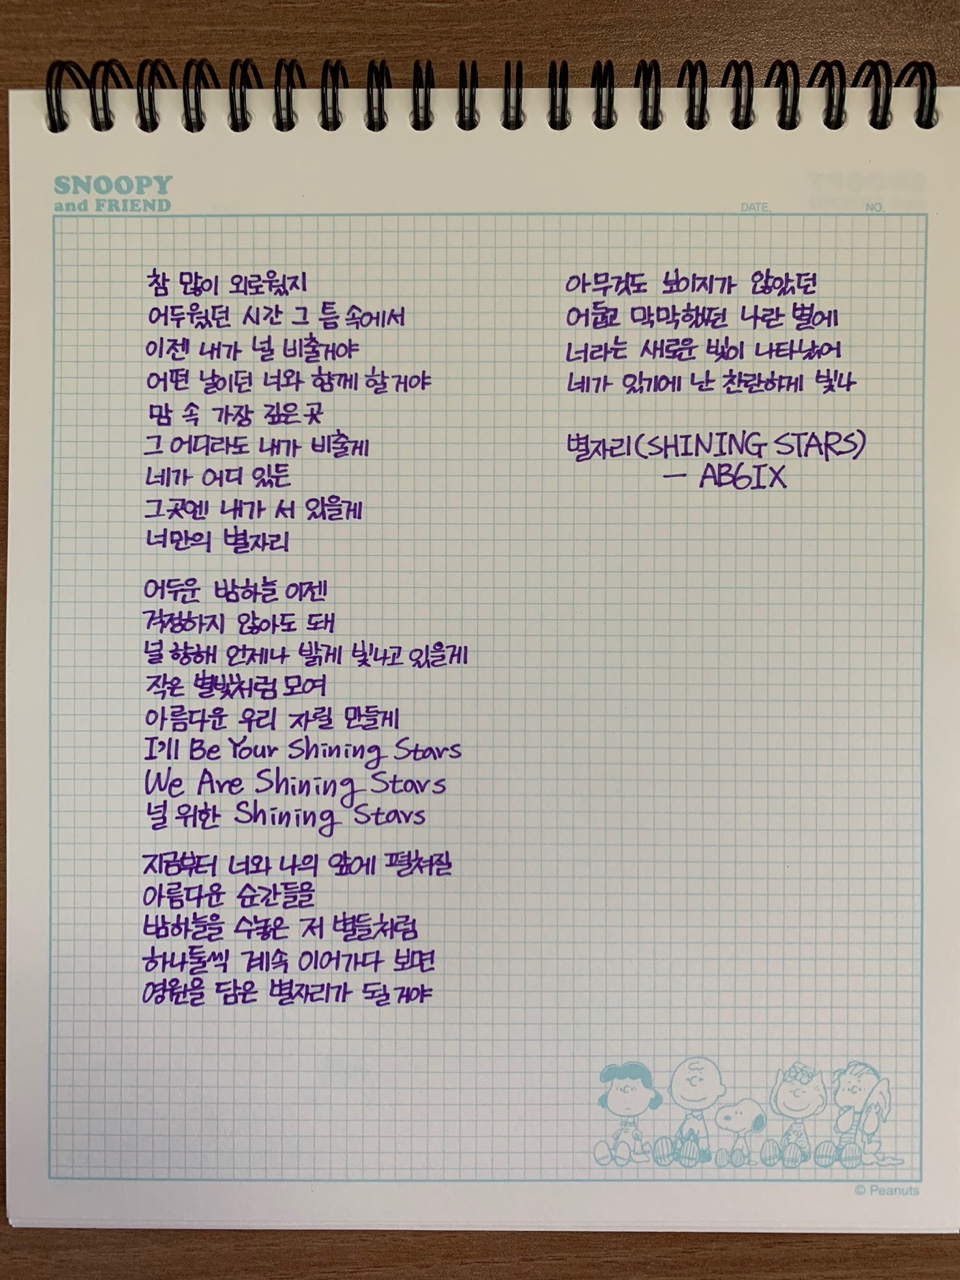 SNOOPY
and FRIEND
DATE.
NO.
참 많이 외로웠지
어두웠던 시간 그 틈 속에서
이젠 내가 널 비출거야
어떤 날이던 너와 함께 할거야
맘 속 가장 깊은 곳
그 어디라도 내가 비출게
네가 어디 있든
그곳엔 내가 서 있을게
너만의 별자리
어두운 밤하늘 이젠
걱정하지 않아도 돼
널 향해 언제나 밝게 빛나고 있을게
작은 별빛처럼 모여
아름다운 우리 자릴 만들게
I'll Be Your Shining Stars
We Are Shining Stars
널 위한 Shining Stars
지금부터 너와 나의 앞에 펼쳐질
아름다운 순간들을
밤하늘을 수놓은 저 별들처럼
하나둘씩 계속 이어가다 보면
영원을 담은 별자리가 될거야
아무것도 보이지가 않았던
어둡고 막막했던 나란 별에
너라는 새로운 빛이 나타났어
네가 있기에 난 찬란하게 빛나
별자리(SHINING STARS)
- AB6IX
© Peanuts